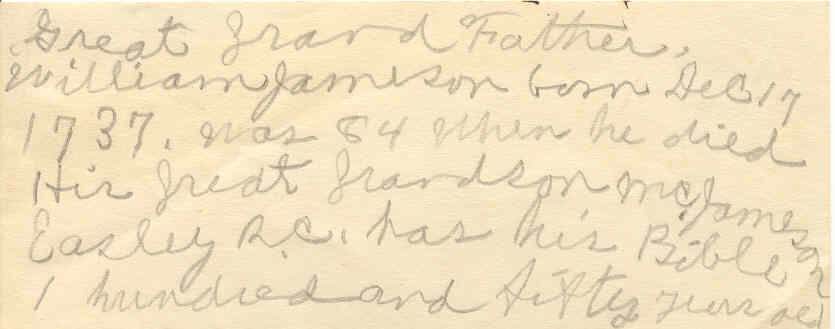 Great Grand Father.
William Jameson born Dec 17
1737. was 84 when he died
His great grandson Mc. Jameson
Easley S.C. has his Bible
1 hundred and fifty years old